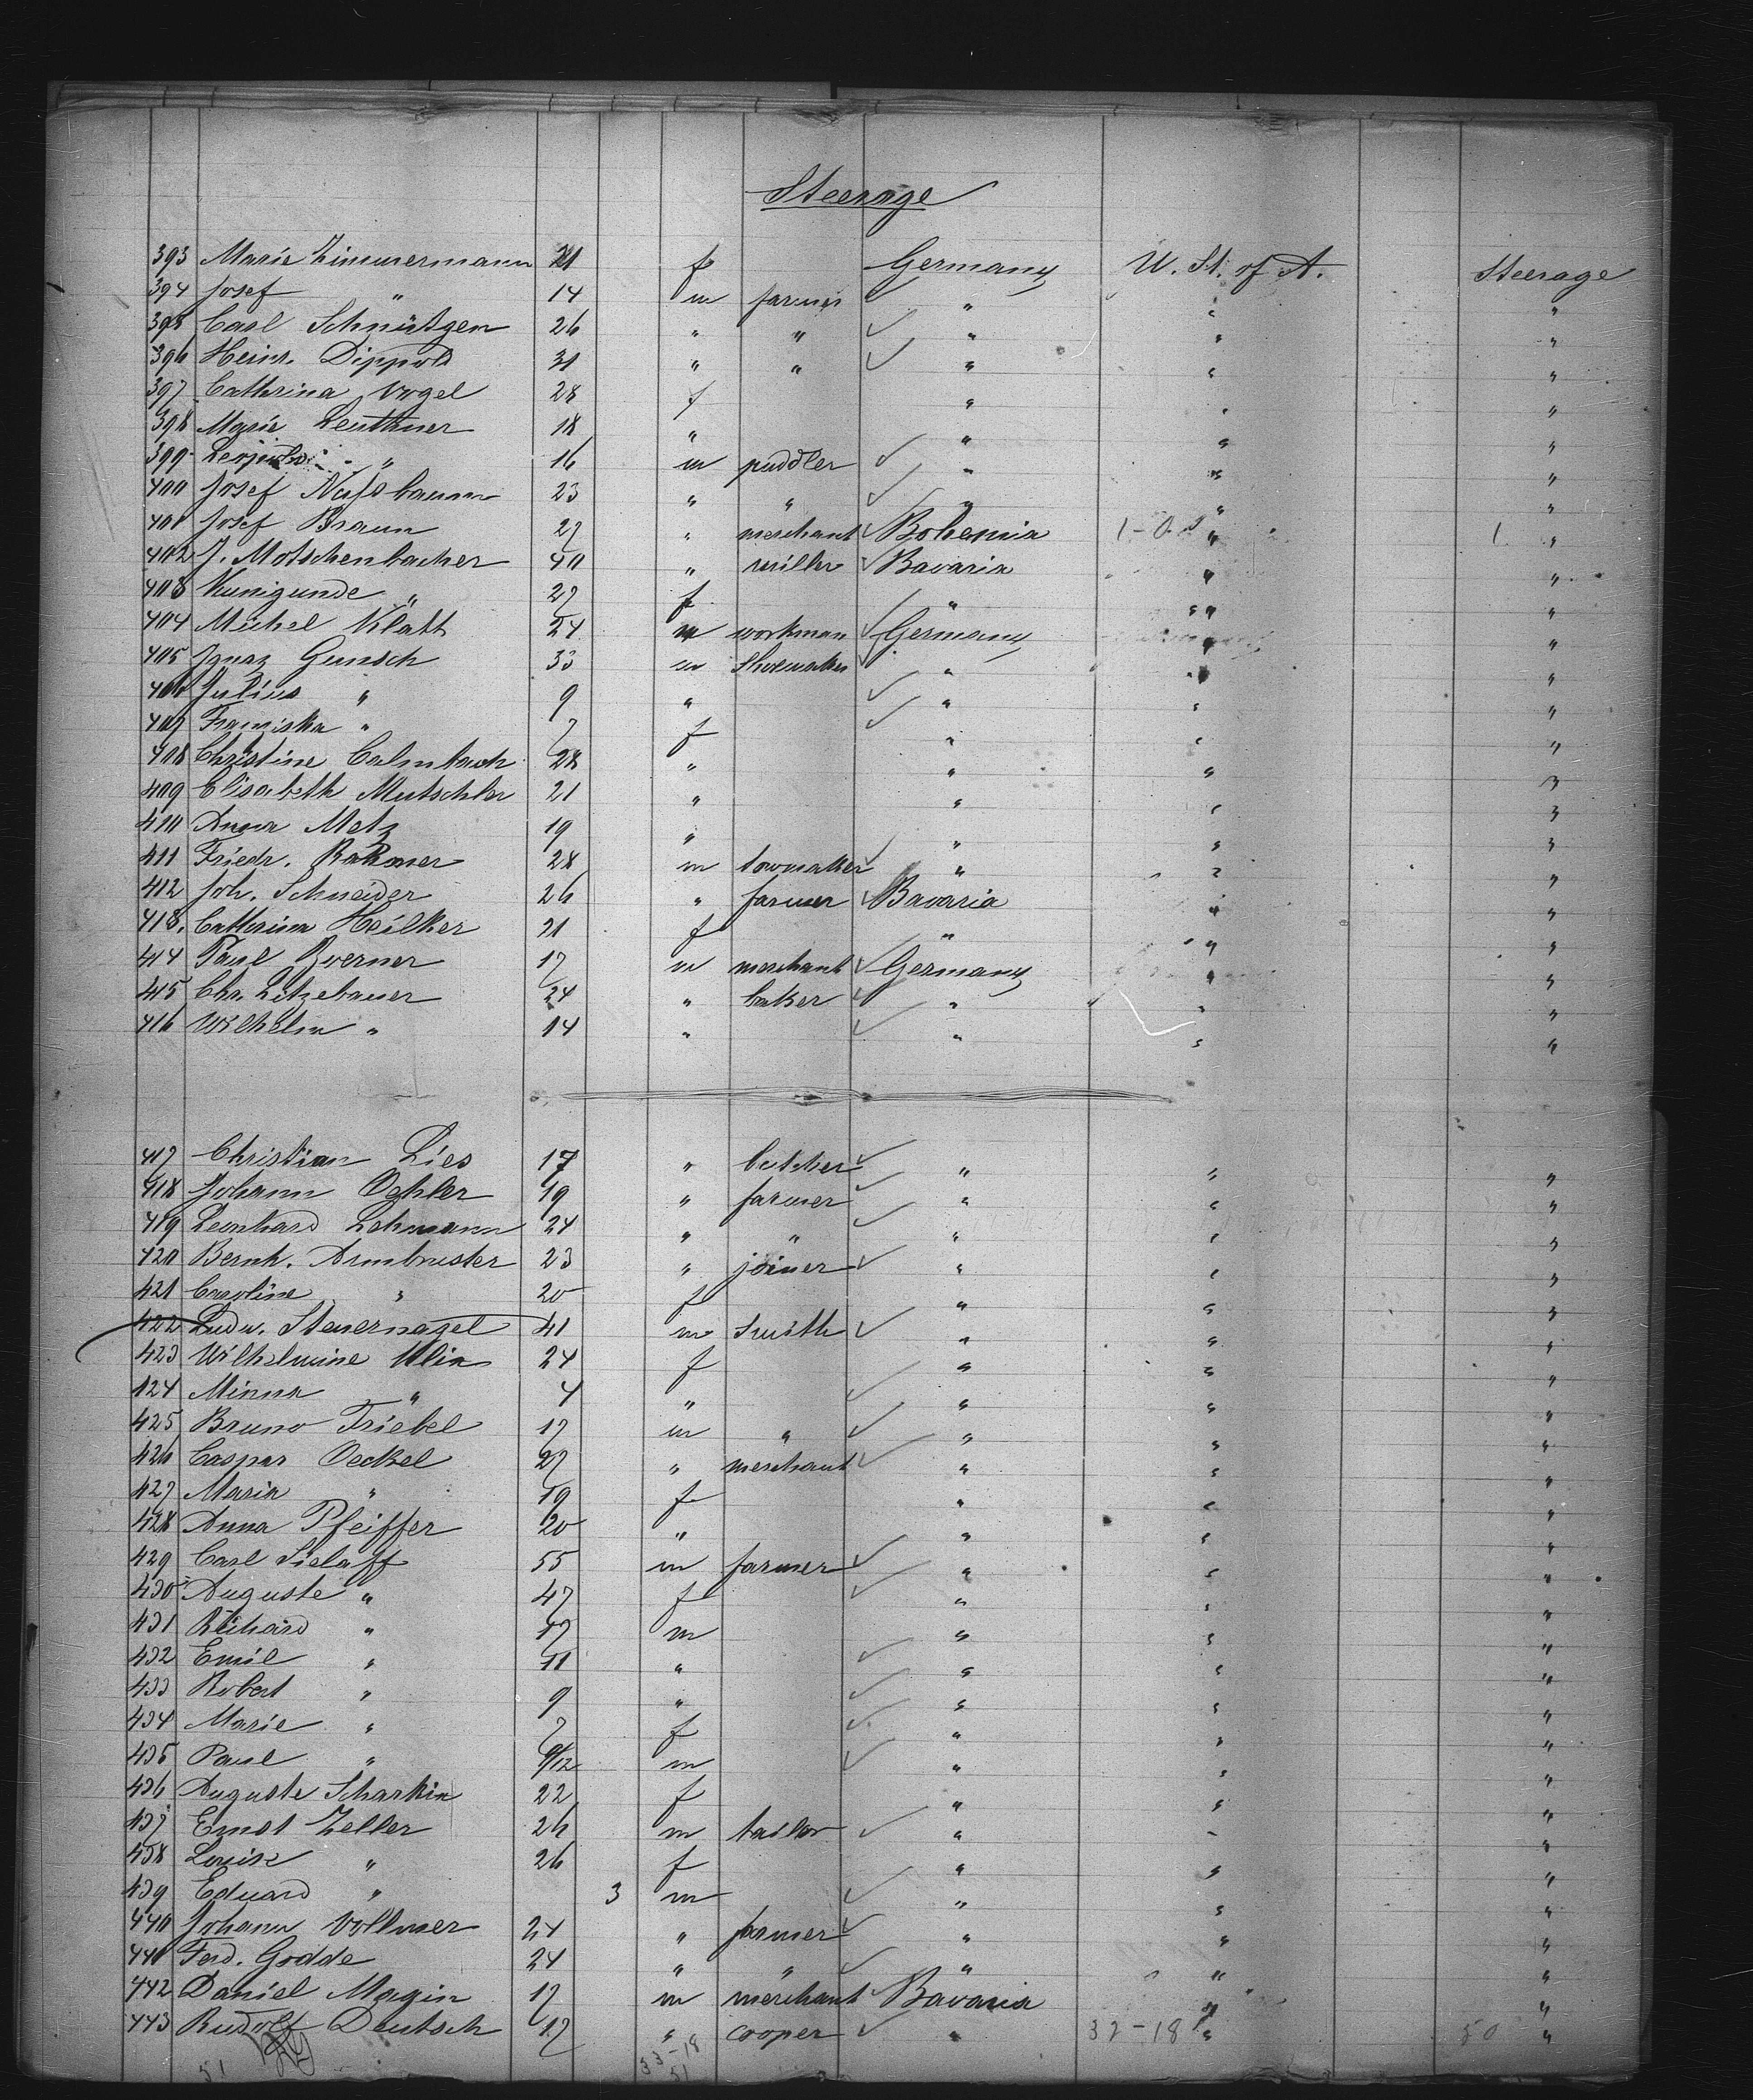 Steerage
393 Marie Zimmermann 21 f Germany U. St. of A. Steerage
394 Josef " 14 m farmer " " "
395 Carl Schnütgen 26 " " " " "
396 Heinr. Dippold 31 " " " " "
397 Cathrina Vogel 28 f " " "
398 Marie Leuthner 18 " " " "
399 " 16 m puddler " " "
400 Josef Nussbaum 23 " " " " "
401 Josef Braun 27 " merchant Bohemia 1-0 " 1 "
402 J. Motschenbacher 40 " miller Bavaria " "
403 Kunigunde " 27 f " " "
404 Michel Klatt 24 m workman Germany " "
405 Ignaz Gunsch 33 m Shoemaker " " "
406 Julius " 9 " " " "
407 Franziska " 7 f " " "
408 Christine Calmbach 28 " " " "
409 Elisabeth Mutschler 21 " " " "
410 Anna Metz 19 " " " "
411 Friedr. 28 m towmaker " " "
412 Joh. Schneider 26 " farmer Bavaria " "
413. Catherina Heilker 21 f " " "
414 Paul Boerner 17 m merchant Germany " "
415 Chr. Litzebauer 24 " baker " " "
416 Wilhelm " 14 " " " "
417 Christian Lies 17 " butcher " " "
418 Johann Oehler 19 " farmer " " "
419 Leonhard Lehmann 24 " " " " "
420 Bernh. Armbruster 23 " joiner " " "
421 Caroline " 20 f " " "
422 Ludw. Steuernagel 41 m Smith " " "
423 Wilhelmine 24 f " " "
424 Minna " 4 " " " "
425 Bruno Triebel 17 m " " " "
426 Caspar Oeckel 27 " merchant " " "
427 Maria " 19 f " " "
428 Anna Pfeiffer 20 " " " "
429 Carl Sielaff 55 m farmer " " "
430 Auguste " 47 f " " "
431 Richard " 17 m " " "
432 Emil " 11 " " " "
433 Robert " 9 " " " "
434 Marie " 7 f " " "
435 Paul " 9/12 m " " "
436 Auguste Scharkin 22 f " " "
437 Ernst Zeller 26 m tailor " " "
438 Louise " 26 f " " "
439 Eduard " 3 m " " "
440 Johann Vollmer 24 " farmer " " "
441 Ferd. Godde 24 " " " " "
442 Daniel Magin 17 m merchant Bavaria " "
443 Rudolf Deutsch 17 " cooper " 32-18 " 50 "
51 33-18
51